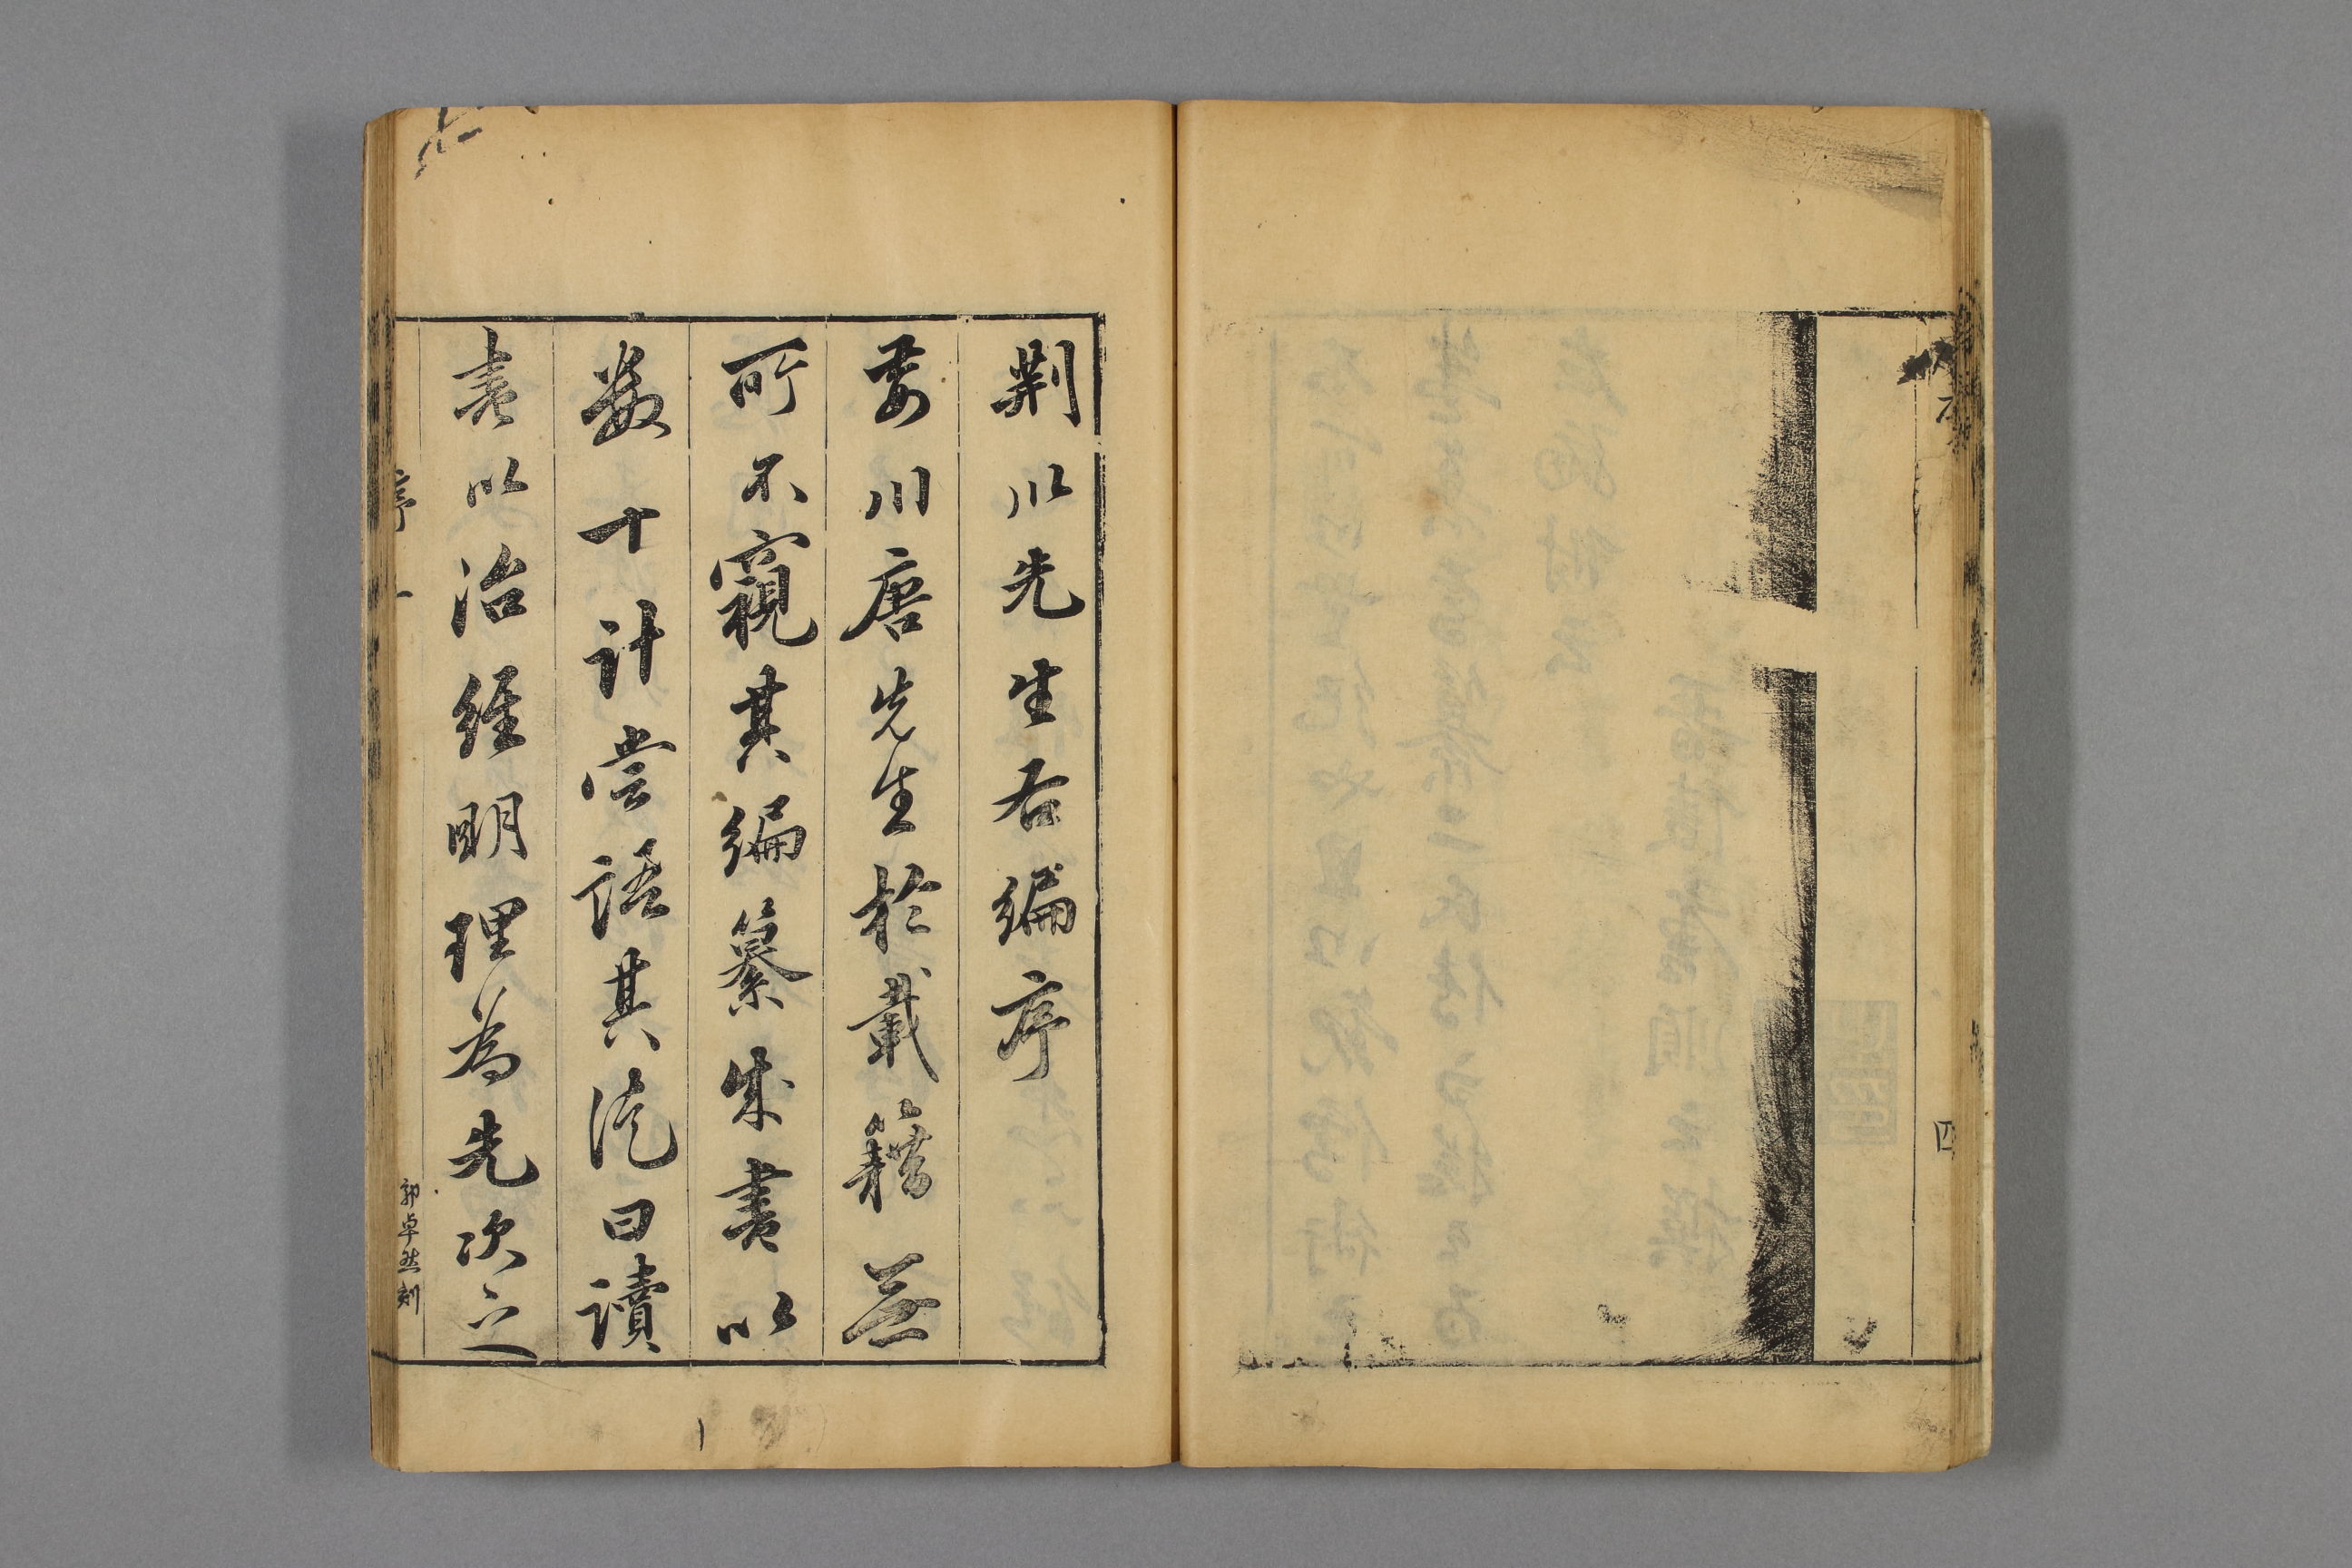 四
荊川先生右編序
荊川唐先生於載籍無
所不窺其編纂成書以
數十計嘗語其徒曰讀
書以治經明理為先次之
序
一
郭卓然刻